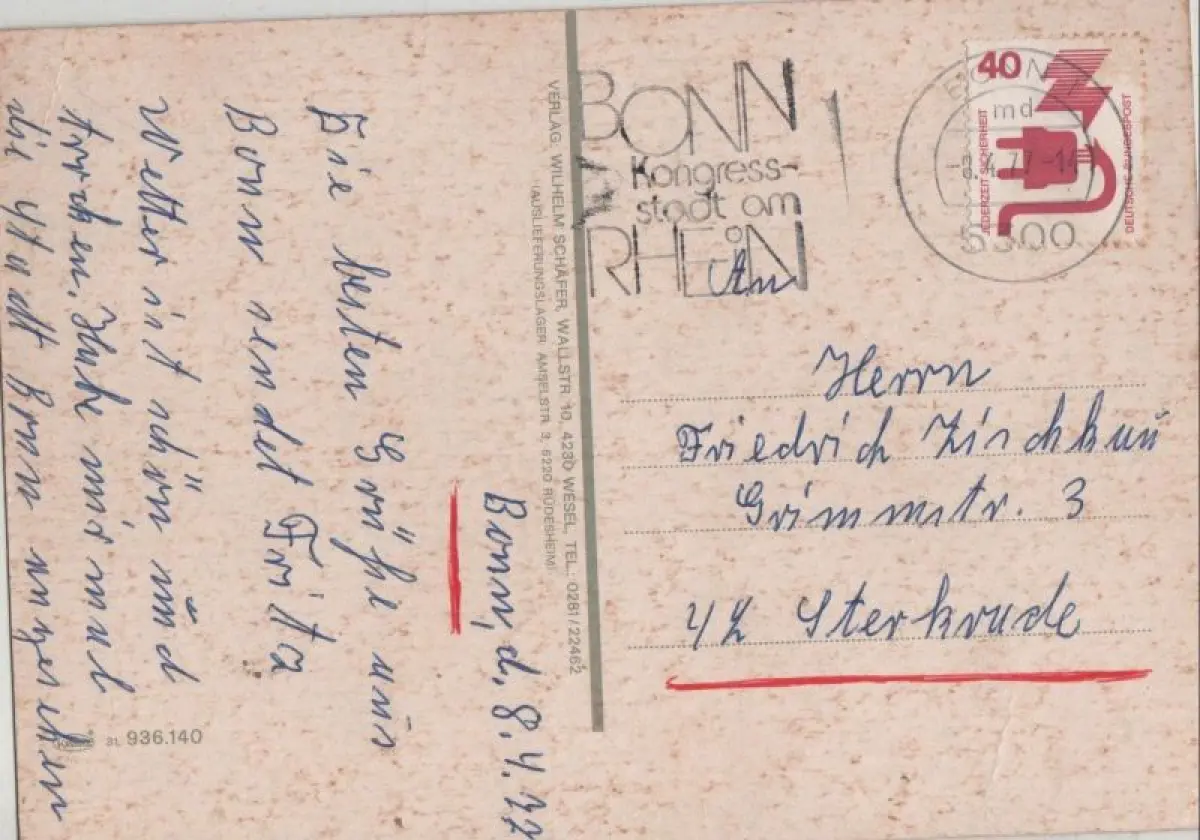 Bonn, d. 8.4.77
Die besten Grüße aus
Bonn sendet Fritz
Wetter ist schön und
trocken. Habe mir mal
die Stadt Bonn angesehen
VERLAG: WILHELM SCHÄFER, WALLSTR. 10, 4230 WESEL, TEL.: 0281/22462
(AUSLIEFERUNGSLAGER: AMSELSTR. 3, 6220 RÜDESHEIM)
31. 936.140
BONN
Kongress-
stadt am
RHEIN
BONN
md
8.4.77-14
5300
40
JEDERZEIT SICHERHEIT
DEUTSCHE BUNDESPOST
An
Herrn
Friedrich
Grimmstr. 3
42 Sterkrade